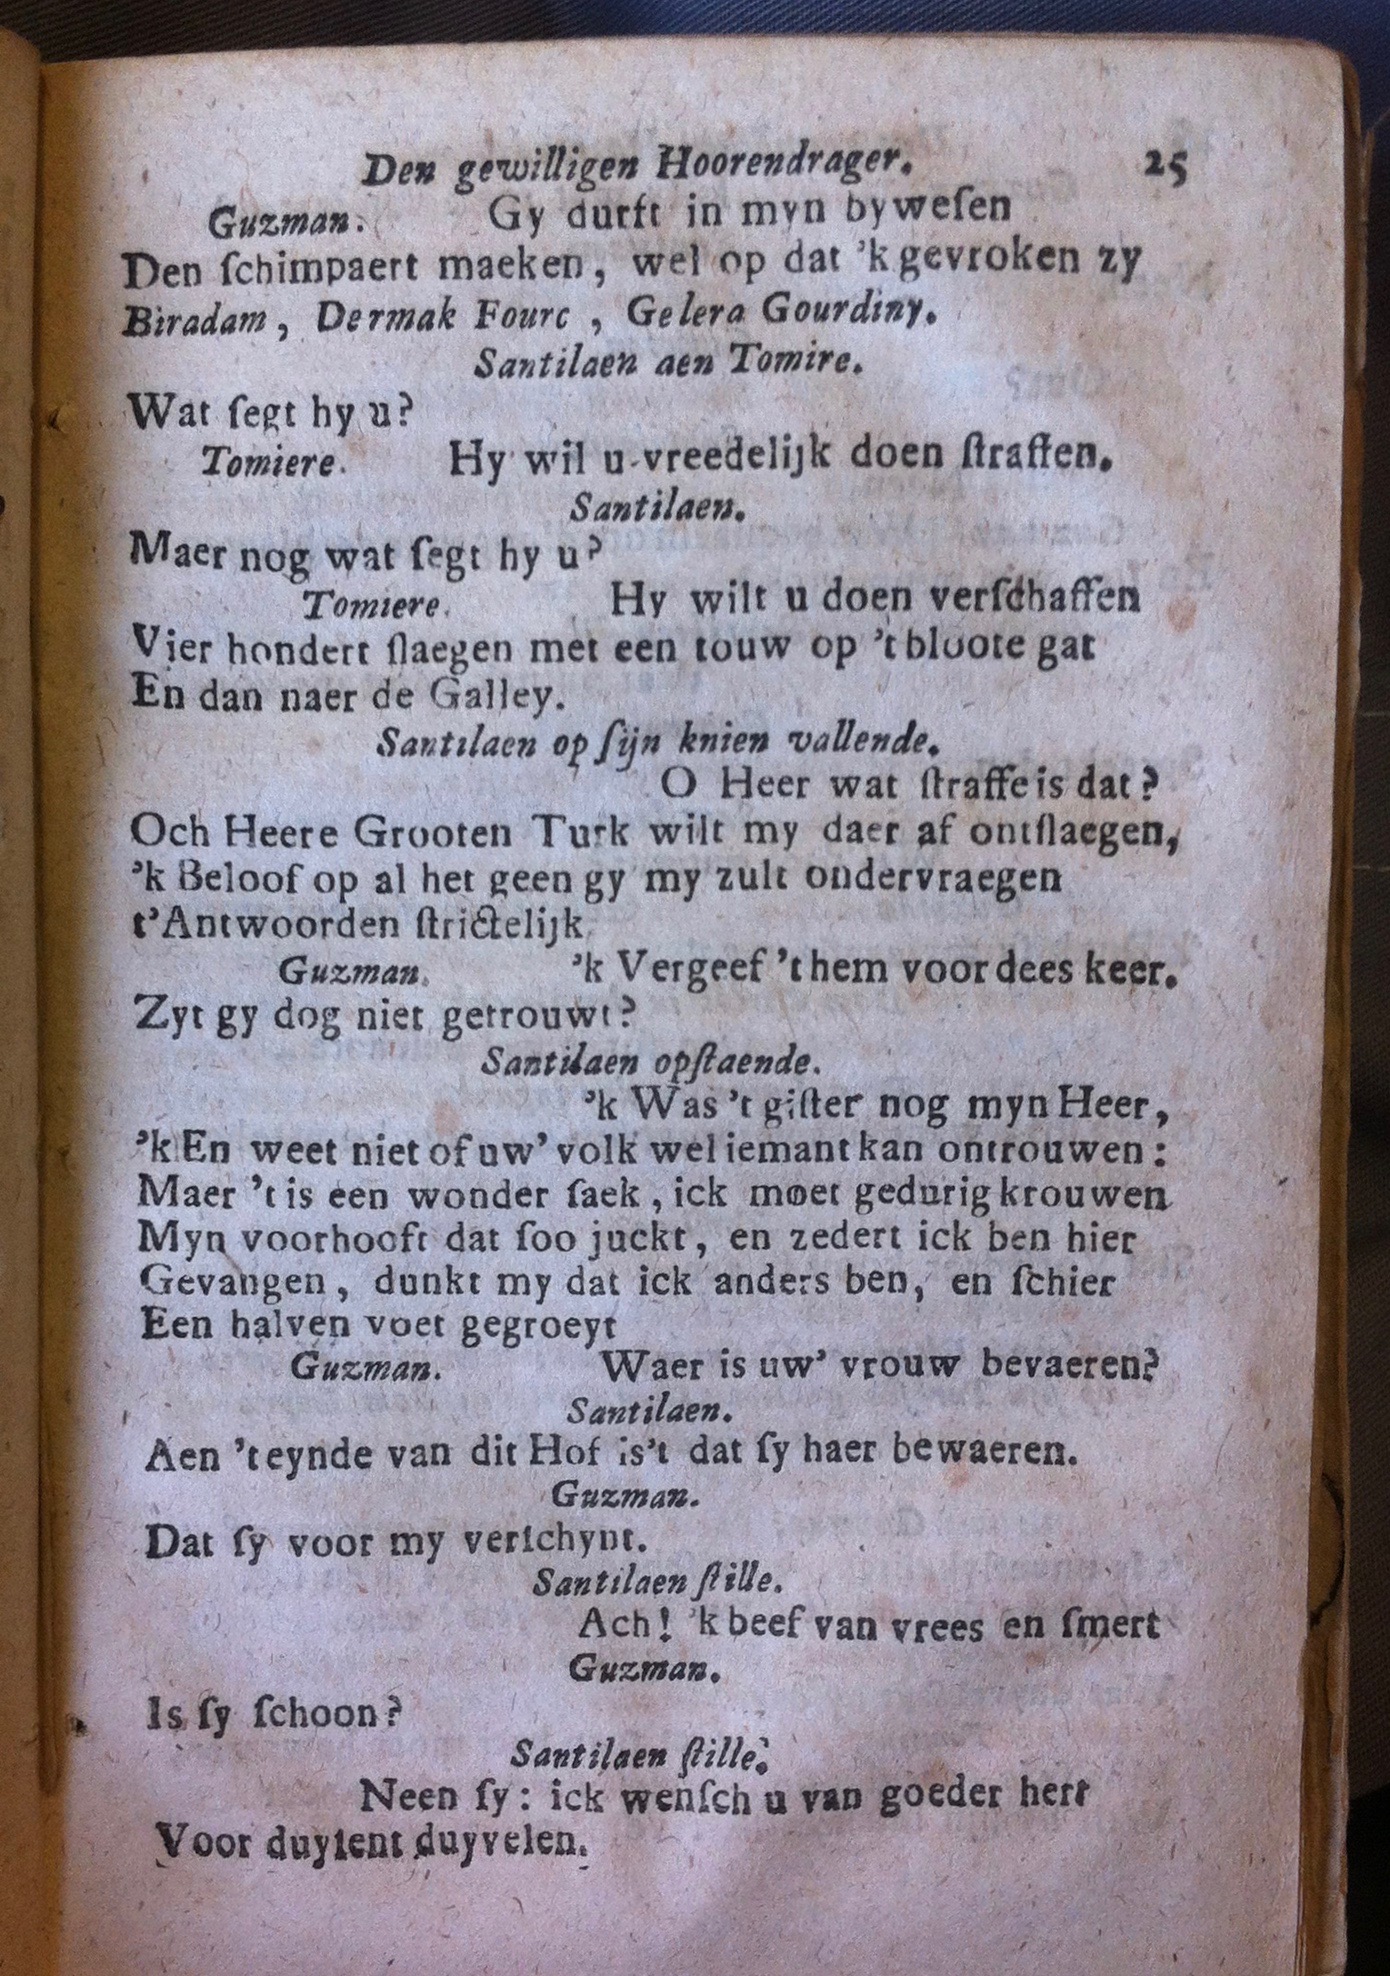 Den gewilligen Hoorendrager. 25
Guzman. Gy durft in myn bywesen
Den ſchimpaert maeken, wel op dat 'k gevroken zy
Biradam, Dermak Fourc, Gelera Gourdiny.
Santilaen aen Tomire.
Wat ſegt hy u?
Tomiere. Hy wil u vreedelijk doen ſtraffen.
Santilaen.
Maer nog wat ſegt hy u?
Tomiere. Hy wilt u doen verſchaffen
Vier hondert ſlaegen met een touw op 't bloote gat
En dan naer de Galley.
Santilaen op ſijn knien vallende.
O Heer wat ſtraffe is dat?
Och Heere Grooten Turk wilt my daer af ontſlaegen,
'k Beloof op al het geen gy my zult ondervraegen
t'Antwoorden ſtrictelijk
Guzman. 'k Vergeef 't hem voor dees keer.
Zyt gy dog niet getrouwt?
Santilaen opſtaende.
'k Was 't giſter nog myn Heer,
'k En weet niet of uw' volk wel iemant kan ontrouwen:
Maer 't is een wonder ſaek, ick moet gedurig krouwen
Myn voorhooft dat ſoo juckt, en zedert ick ben hier
Gevangen, dunkt my dat ick anders ben, en ſchier
Een halven voet gegroeyt
Guzman. Waer is uw' vrouw bevaeren?
Santilaen.
Aen 't eynde van dit Hof is't dat ſy haer bewaeren.
Guzman.
Dat ſy voor my verſchynt.
Santilaen ſtille.
Ach! 'k beef van vrees en ſmert
Guzman.
Is ſy ſchoon?
Santilaen ſtille.
Neen ſy: ick wenſch u van goeder hert
Voor duyſent duyvelen.